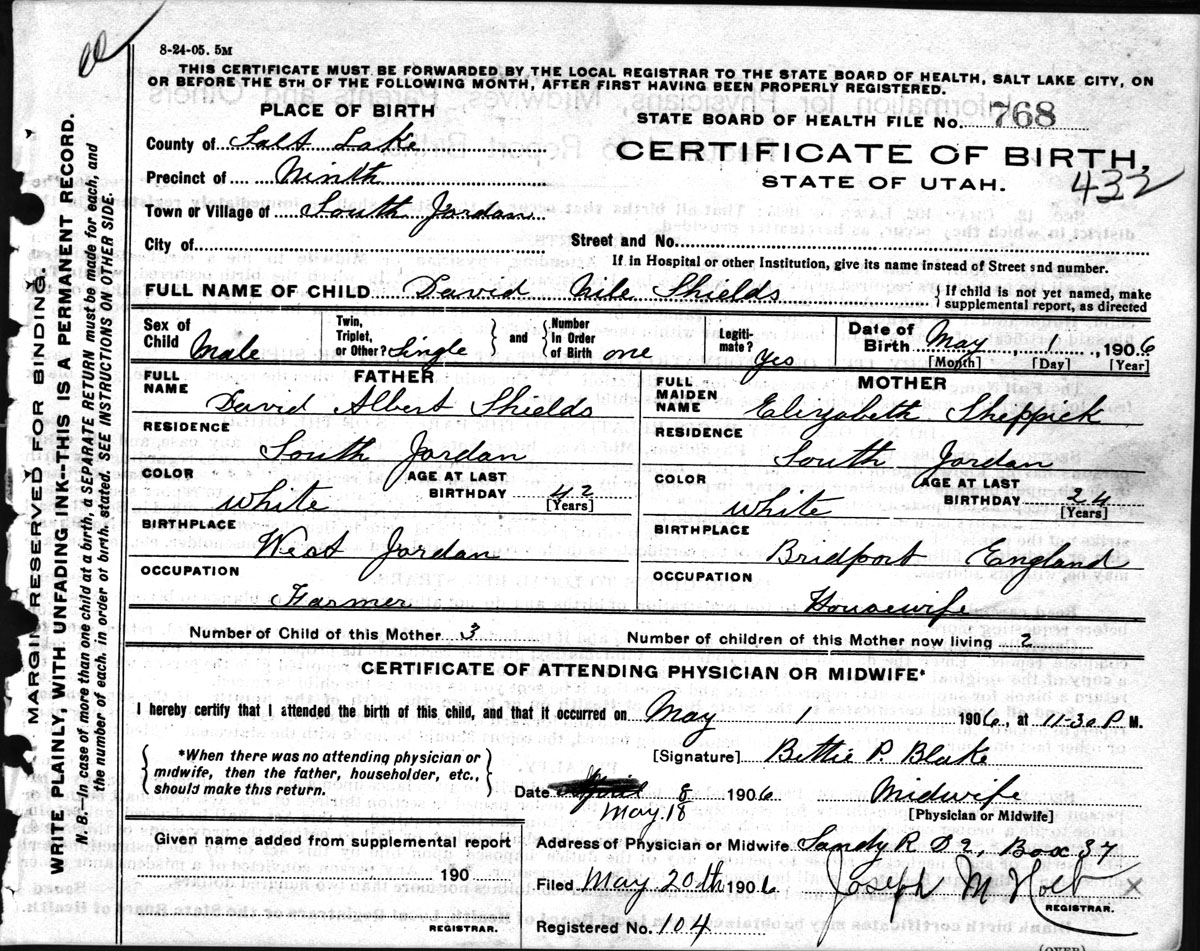 8-24-05. 5M
THIS CERTIFICATE MUST BE FORWARDED BY THE LOCAL REGISTRAR TO THE STATE BOARD OF HEALTH, SALT LAKE CITY, ON
OR BEFORE THE 5TH OF THE FOLLOWING MONTH, AFTER FIRST HAVING BEEN PROPERLY REGISTERED.
PLACE OF BIRTH
STATE BOARD OF HEALTH FILE No. 768
County of Salt Lake
CERTIFICATE OF BIRTH,
Precinct of Ninth
STATE OF UTAH.
432
Town or Village of South Jordan
City of
Street and No.
If in Hospital or other Institution, give its name instead of Street and number.
FULL NAME OF CHILD David Nile Shields {If child is not yet named, make supplemental report, as directed
Sex of Child Male
Twin, Triplet, or Other? Single } and { Number In Order of Birth one
Legiti-mate? Yes
Date of Birth May 1, 1906
[Month] [Day] [Year]
FATHER
FULL NAME David Albert Shields
RESIDENCE
South Jordan
COLOR White
AGE AT LAST BIRTHDAY 42
[Years]
BIRTHPLACE
West Jordan
OCCUPATION
Farmer
MOTHER
FULL MAIDEN NAME Elizabeth Sheppick
RESIDENCE
South Jordan
COLOR White
AGE AT LAST BIRTHDAY 24
[Years]
BIRTHPLACE
Bridport England
OCCUPATION
Housewife
Number of Child of this Mother 3
Number of children of this Mother now living 2
CERTIFICATE OF ATTENDING PHYSICIAN OR MIDWIFE*
I hereby certify that I attended the birth of this child, and that it occurred on May 1 1906, at 11-30 P M.
{ *When there was no attending physician or
midwife, then the father, householder, etc.,
should make this return. }
[Signature] Bettie P. Blake
Date 8 1906
May 18
Midwife
[Physician or Midwife]
Given name added from supplemental report
190
REGISTRAR.
Address of Physician or Midwife Sandy R D 2, Box 37
Filed May 20th 1906 Joseph M Holt X
REGISTRAR.
Registered No. 104
(OVER)
MARGIN RESERVED FOR BINDING.
WRITE PLAINLY, WITH UNFADING INK--THIS IS A PERMANENT RECORD.
N. B.--In case of more than one child at a birth, a SEPARATE RETURN must be made for each, and
the number of each, in order of birth, stated. SEE INSTRUCTIONS ON OTHER SIDE.